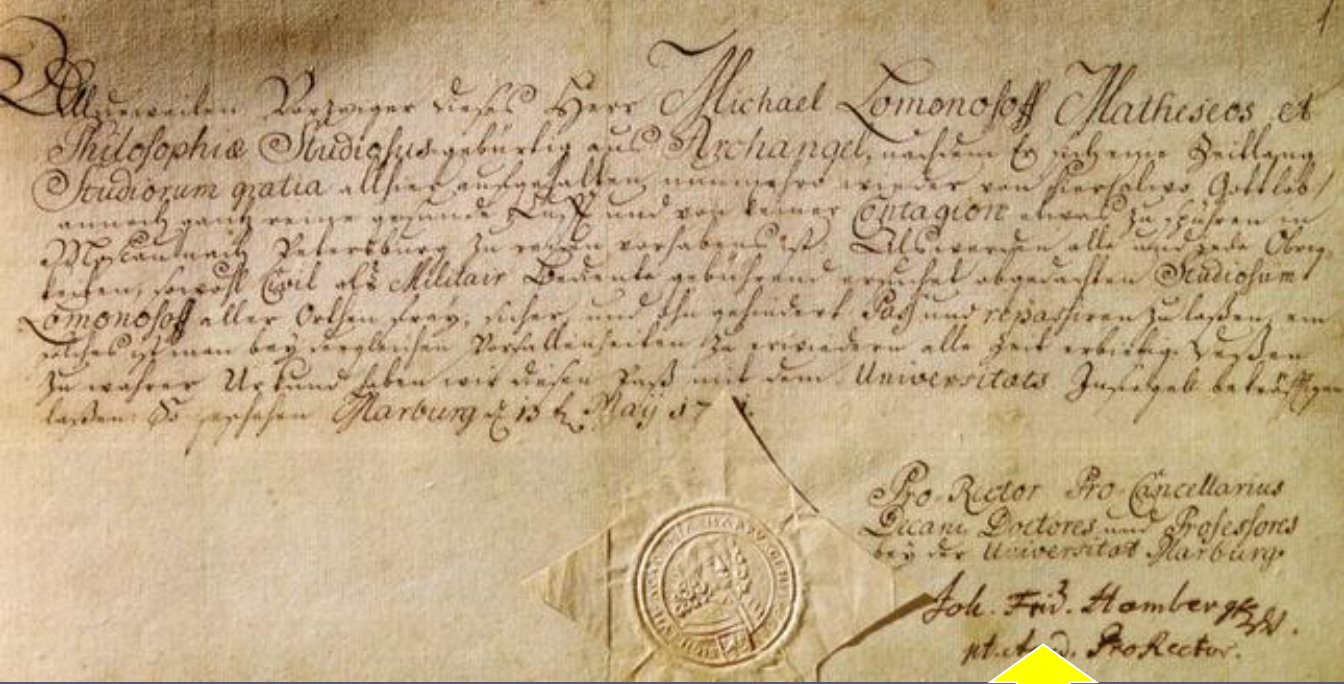 Alldieweilen Vorzeiger dieses Herr Michael Lomonosoff Matheseos et
Philosophiæ Studiosus gebürtig aus Archangel, nachdem Er sich eine Zeitlang
Studiorum gratia allhier aufgehalten nunmehro wieder von hier Gottlob
annoch gantz reine gesunde Lufft und von keiner Contagion etwas zu spühren in
Moscau nach Petersburg zu reisen vorhabens ist. Als werden alle und jede Obrig
keiten, sowohl Civil als Militair Bediente gebührend ersuchet obgedachten Studiosum
Lomonosoff aller Orthen frey, sicher, und ohngehindert Paß und repassiren zu laßen, ein
solches ist man bey dergleichen Vorfallenheiten zu erwiedern alle Zeit erbiethig. Deßen
zu wahrer Urkund haben wir diesen Paß mit dem Universitäts Insiegel bekräfftigen
laßen. So geschehen Marburg d 13 May 17
Pro-Rector Pro-Cancellarius
Decani Doctores und Professores
bey der Universität Marburg.
Joh. Frid. Homberg
p.t. Acad. ProRector.